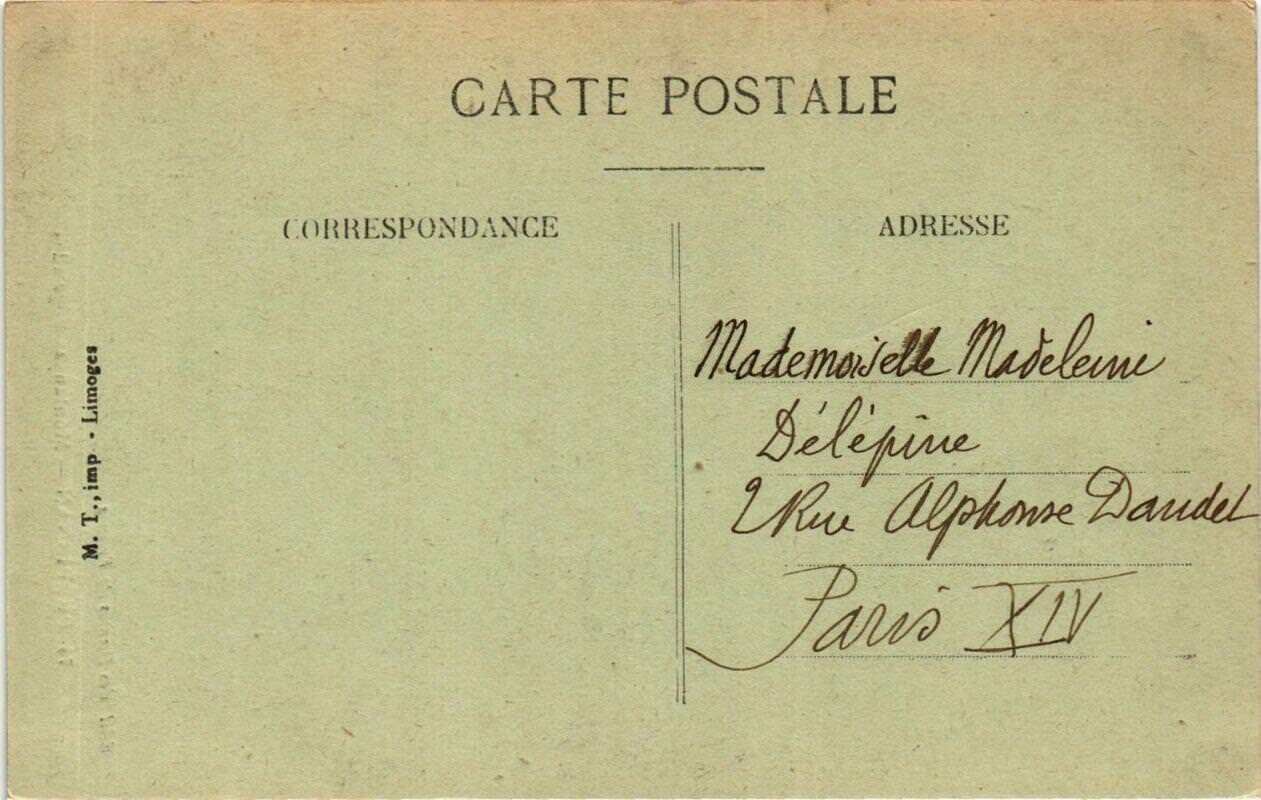 CARTE POSTALE
CORRESPONDANCE
ADRESSE
M. T., imp - Limoges
Mademoiselle Madeleine
Délépine
2 Rue Alphonse Daudet
Paris XIV